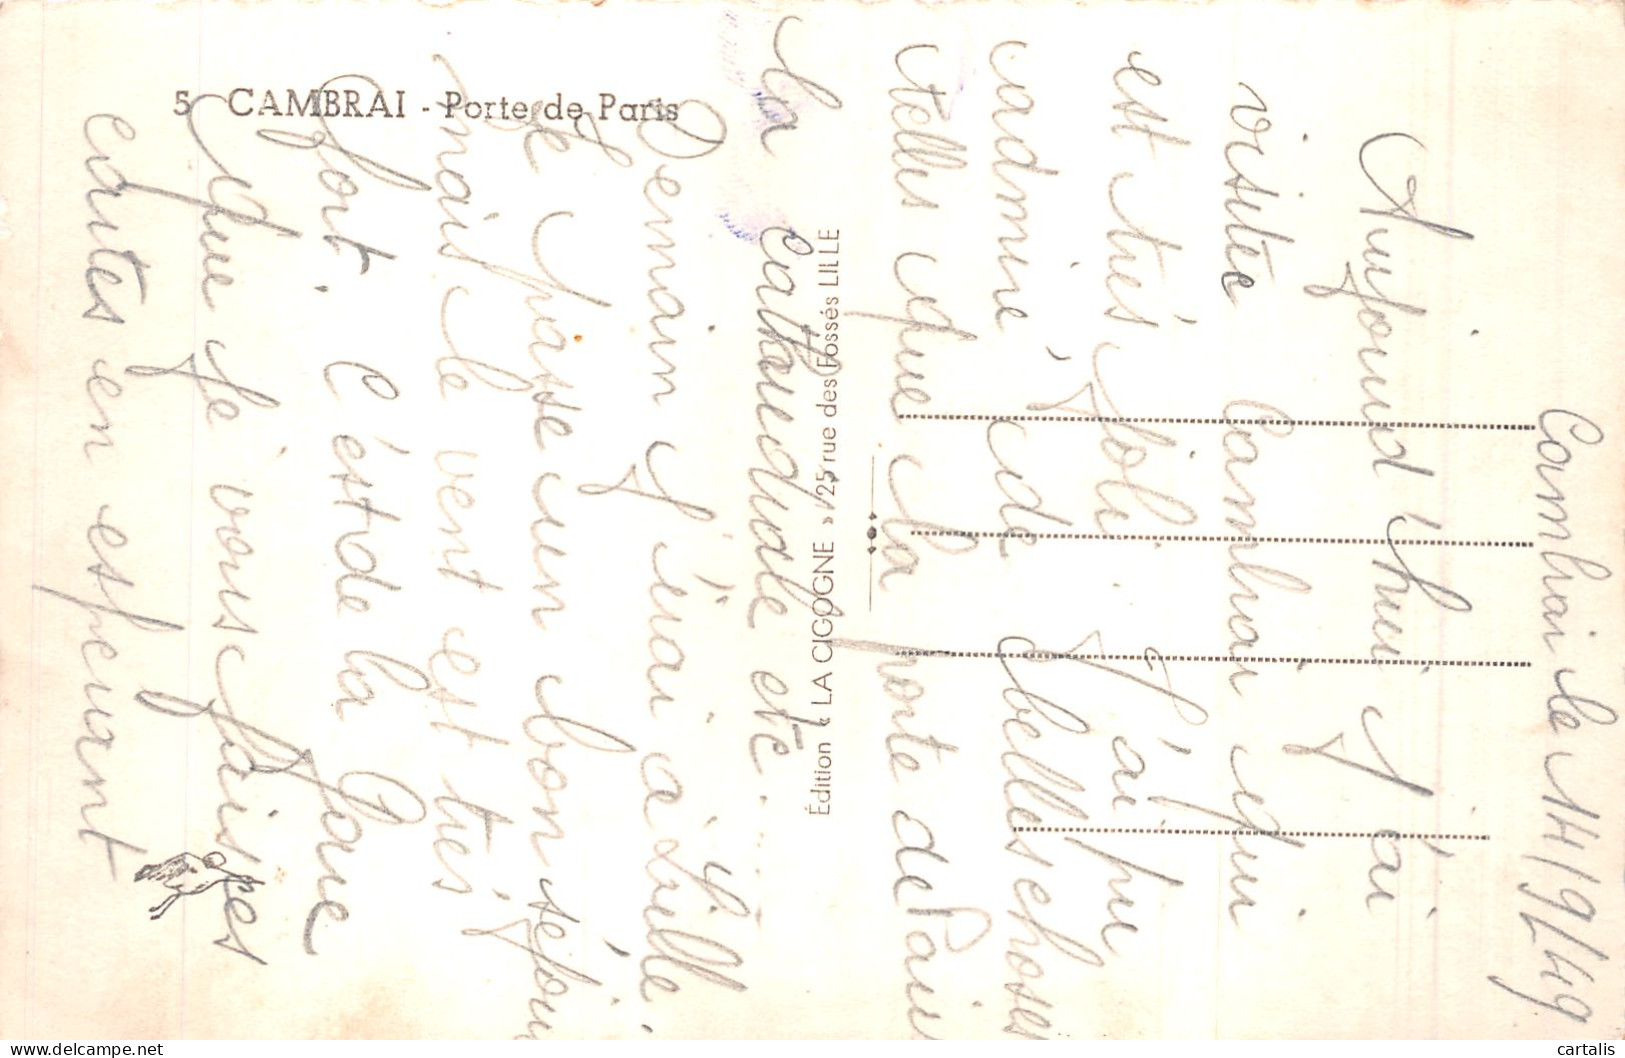 5 CAMBRAI - Porte de Paris
Édition « LA CIGOGNE » 25, rue des Fossés LILLE
Cambrai le 14/9/49
Aujourd'hui j'ai
visité Cambrai qui
est très joli. J'ai pu
admiré de belles choses
telles que la porte de Paris
la cathedrale etc...
Demain j'irai à Lille.
Je passe un bon séjour
mais le vent est très
fort. C'est de la Gare
que je vous faises
cartes en esperant
cartalis